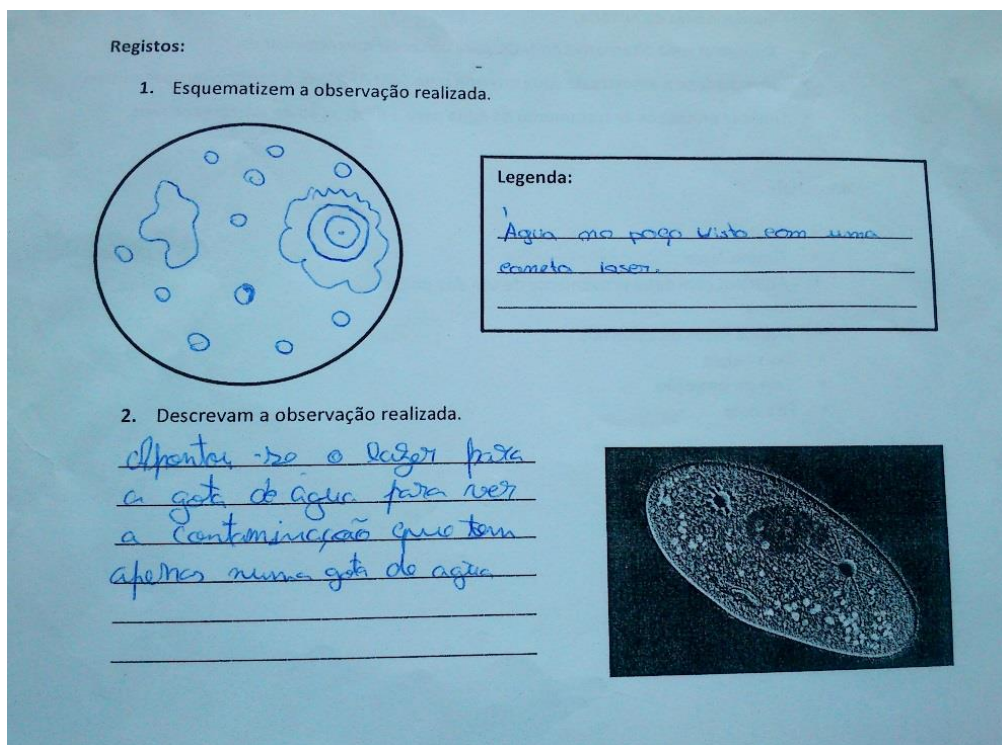 Registos:
1. Esquematizem a observação realizada.
Legenda:
Água no poço visto com uma
caneta laser.
2. Descrevam a observação realizada.
Apontou-se o lazer para
a gota de água para ver
a contaminação que tem
apenas numa gota de agua